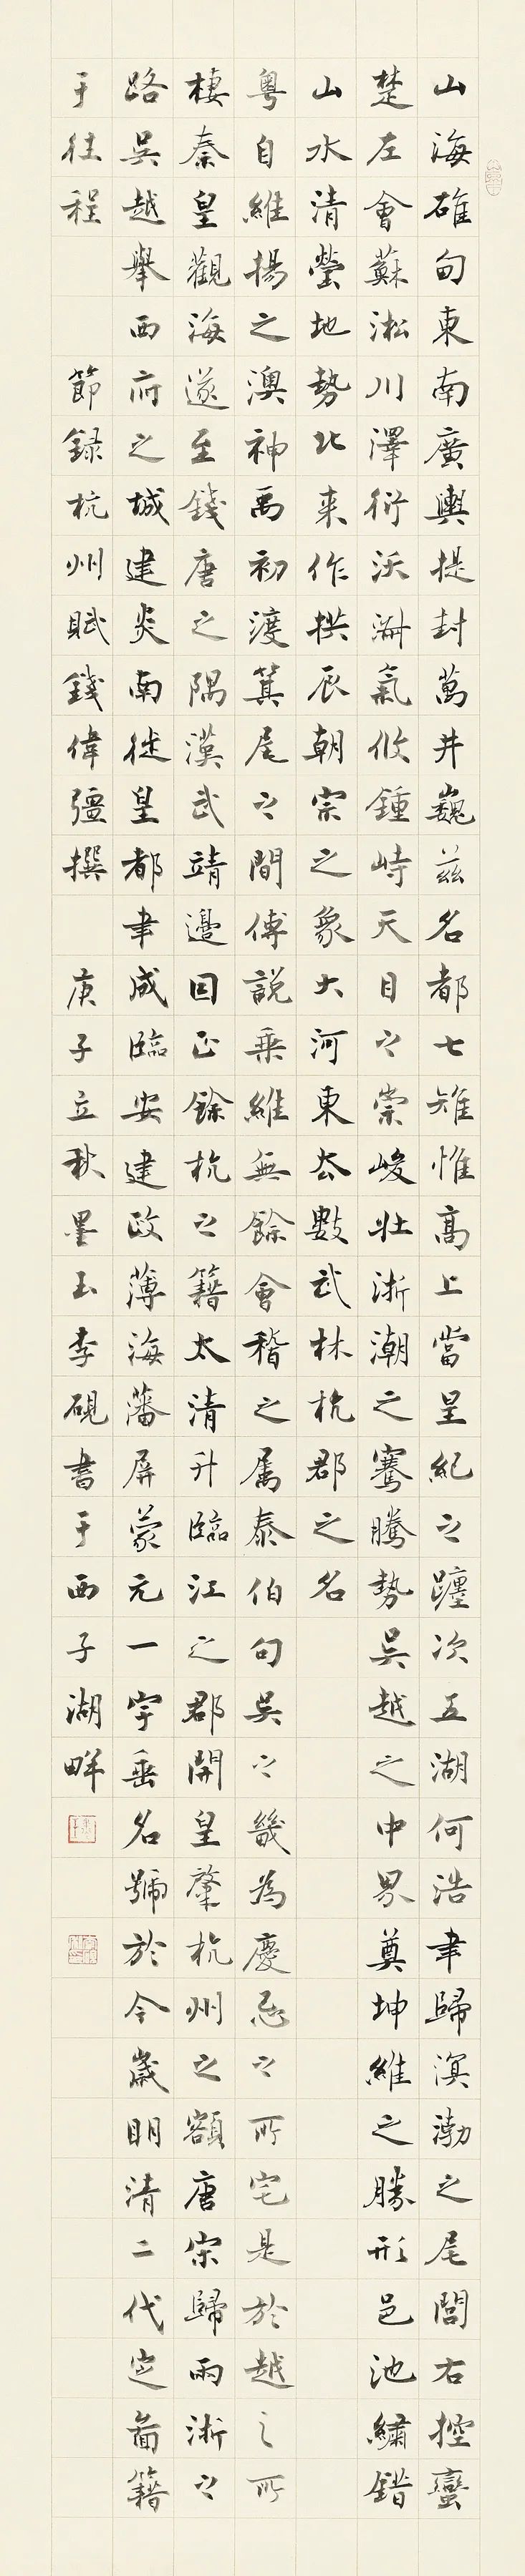 山海雄甸東南廣輿提封萬井巍茲名都七雉惟高上當星紀之躔次五湖何浩聿歸溟渤之尾閭右控蠻
楚左會蘇淞川澤衍沃淵氣攸鍾峙天目之崇峻壯浙潮之騫騰勢吳越之中界奠坤維之勝形邑池繡錯
山水清瑩地勢北來作拱辰朝宗之象大河東去數武林杭郡之名
粵自維揚之澳神禹初渡箕尾之間傅說乘維無餘會稽之屬泰伯句吳之畿為慶忌之所宅是於越之所
棲秦皇觀海遂至錢唐之隅漢武靖邊因正餘杭之籍太清升臨江之郡開皇肇杭州之額唐宋歸兩浙之
路吳越舉西府之城建炎南徙皇都聿成臨安建政薄海藩屏蒙元一宇垂名號於今歲明清二代定圖籍
于往程 節錄杭州賦錢偉彊撰 庚子立秋墨玉李硯書于西子湖畔